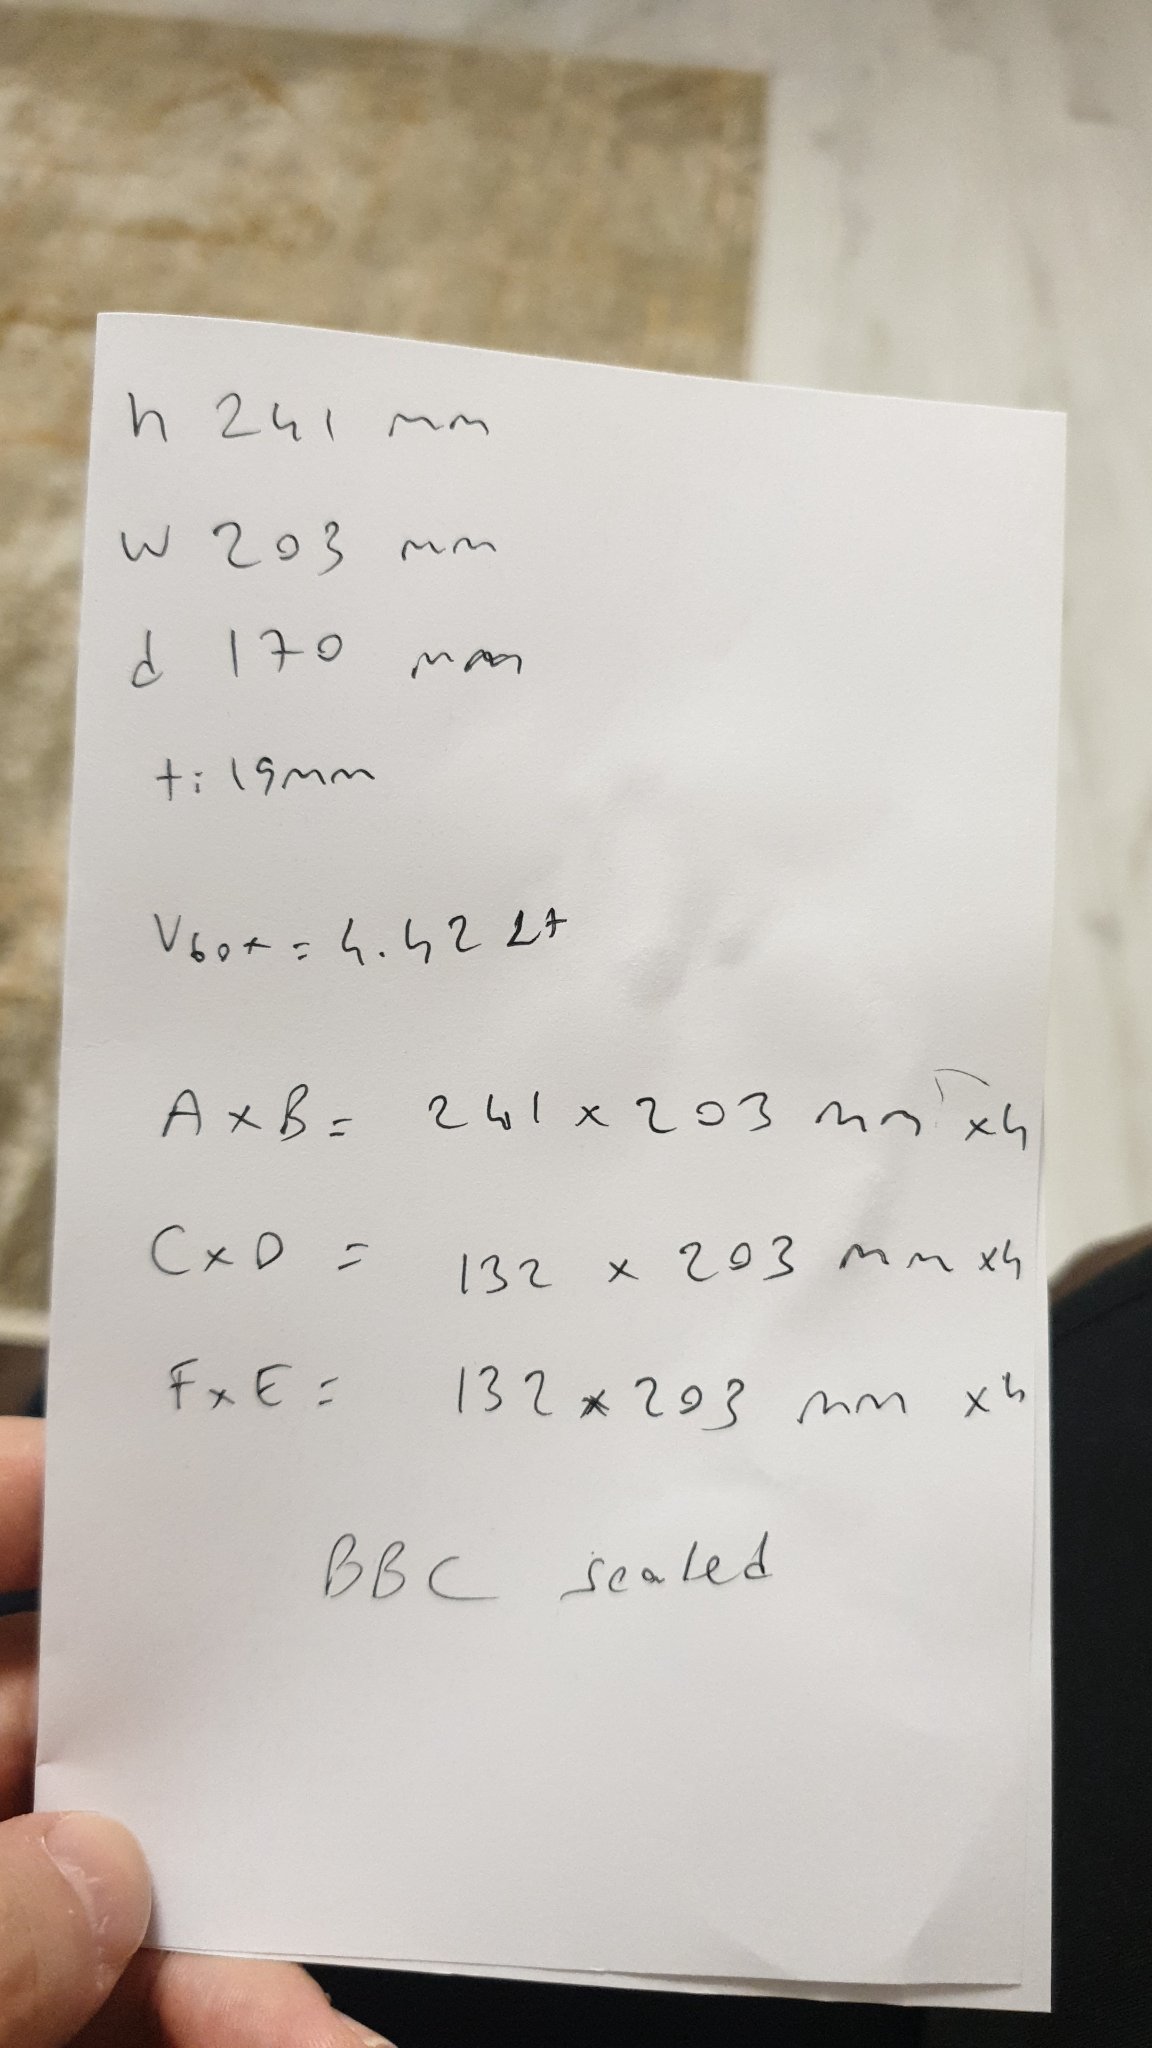 h 241 mm
w 203 mm
d 170 mm
t: 19mm
Vbox = 4.42 Lt
AxB = 241 x 203 mm x4
CxD = 132 x 203 mm x4
FxE = 132 x 203 mm x4
BBC sealed